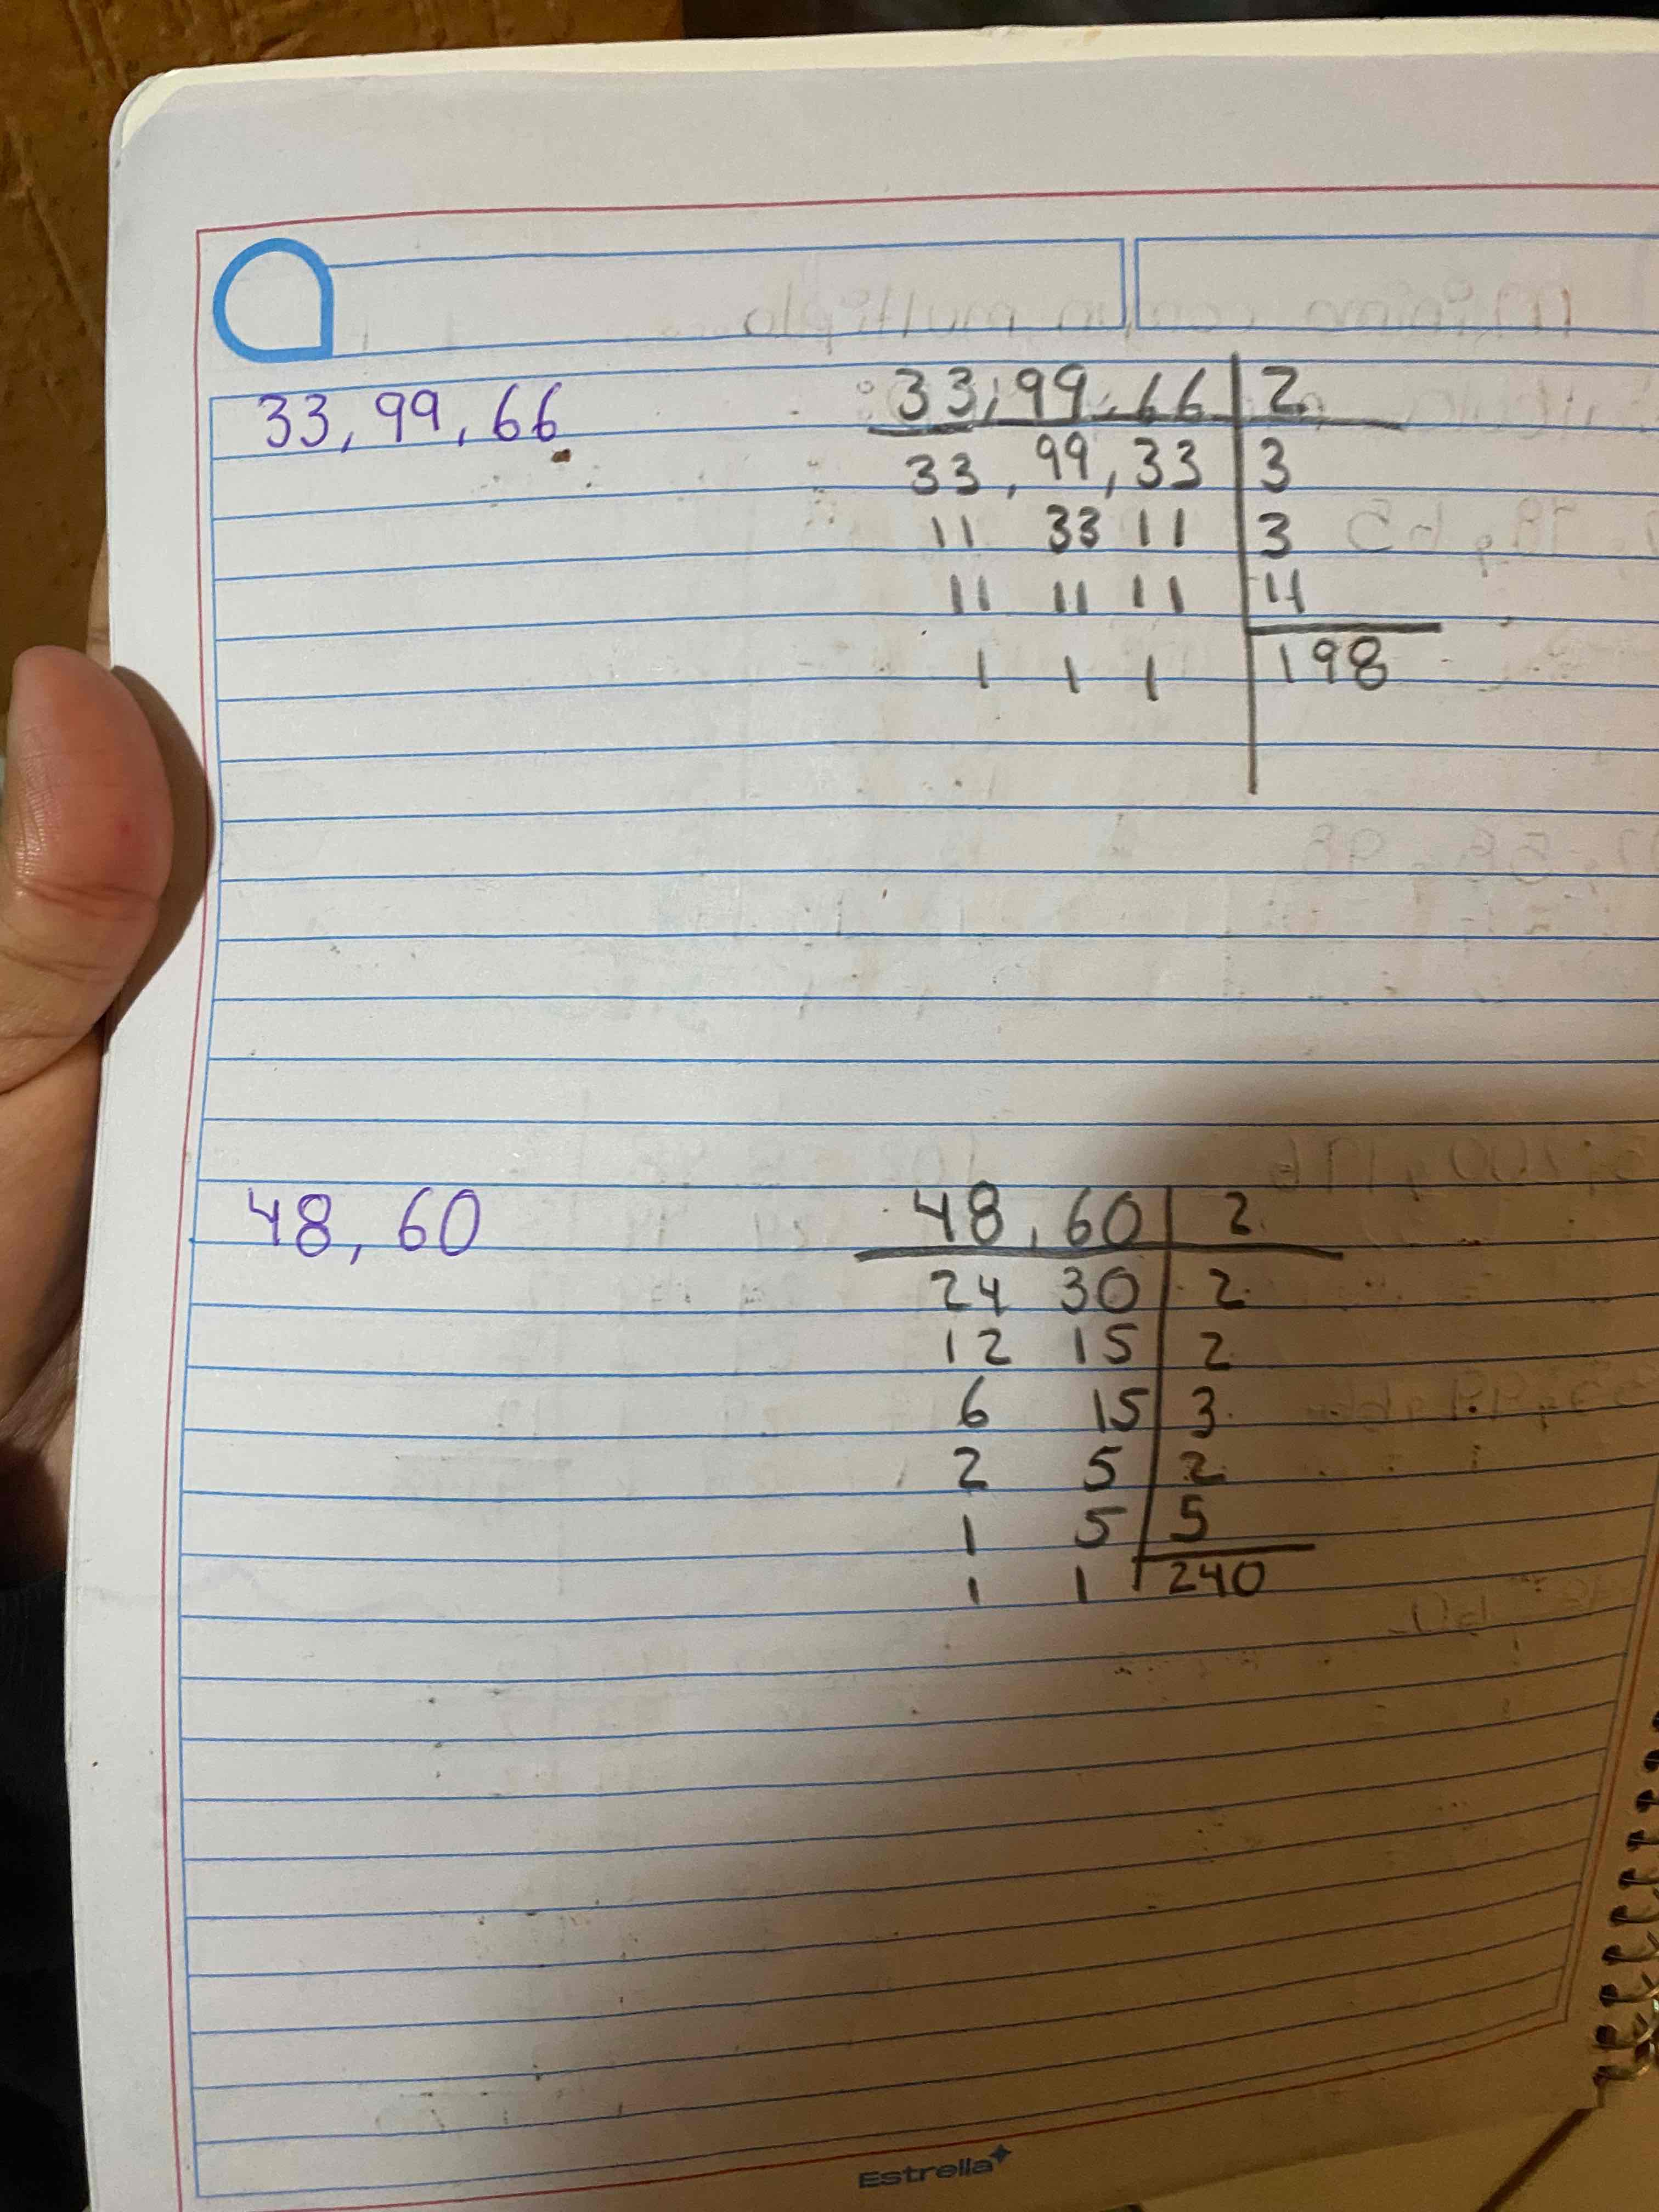 33, 99, 66
33, 99, 66 2
33, 99, 33 3
11 33 11 3
11 11 11 11
1 1 1 198
48, 60
48, 60 2
24 30 2
12 15 2
6 15 3
2 5 2
1 5 5
1 1 240
Estrella